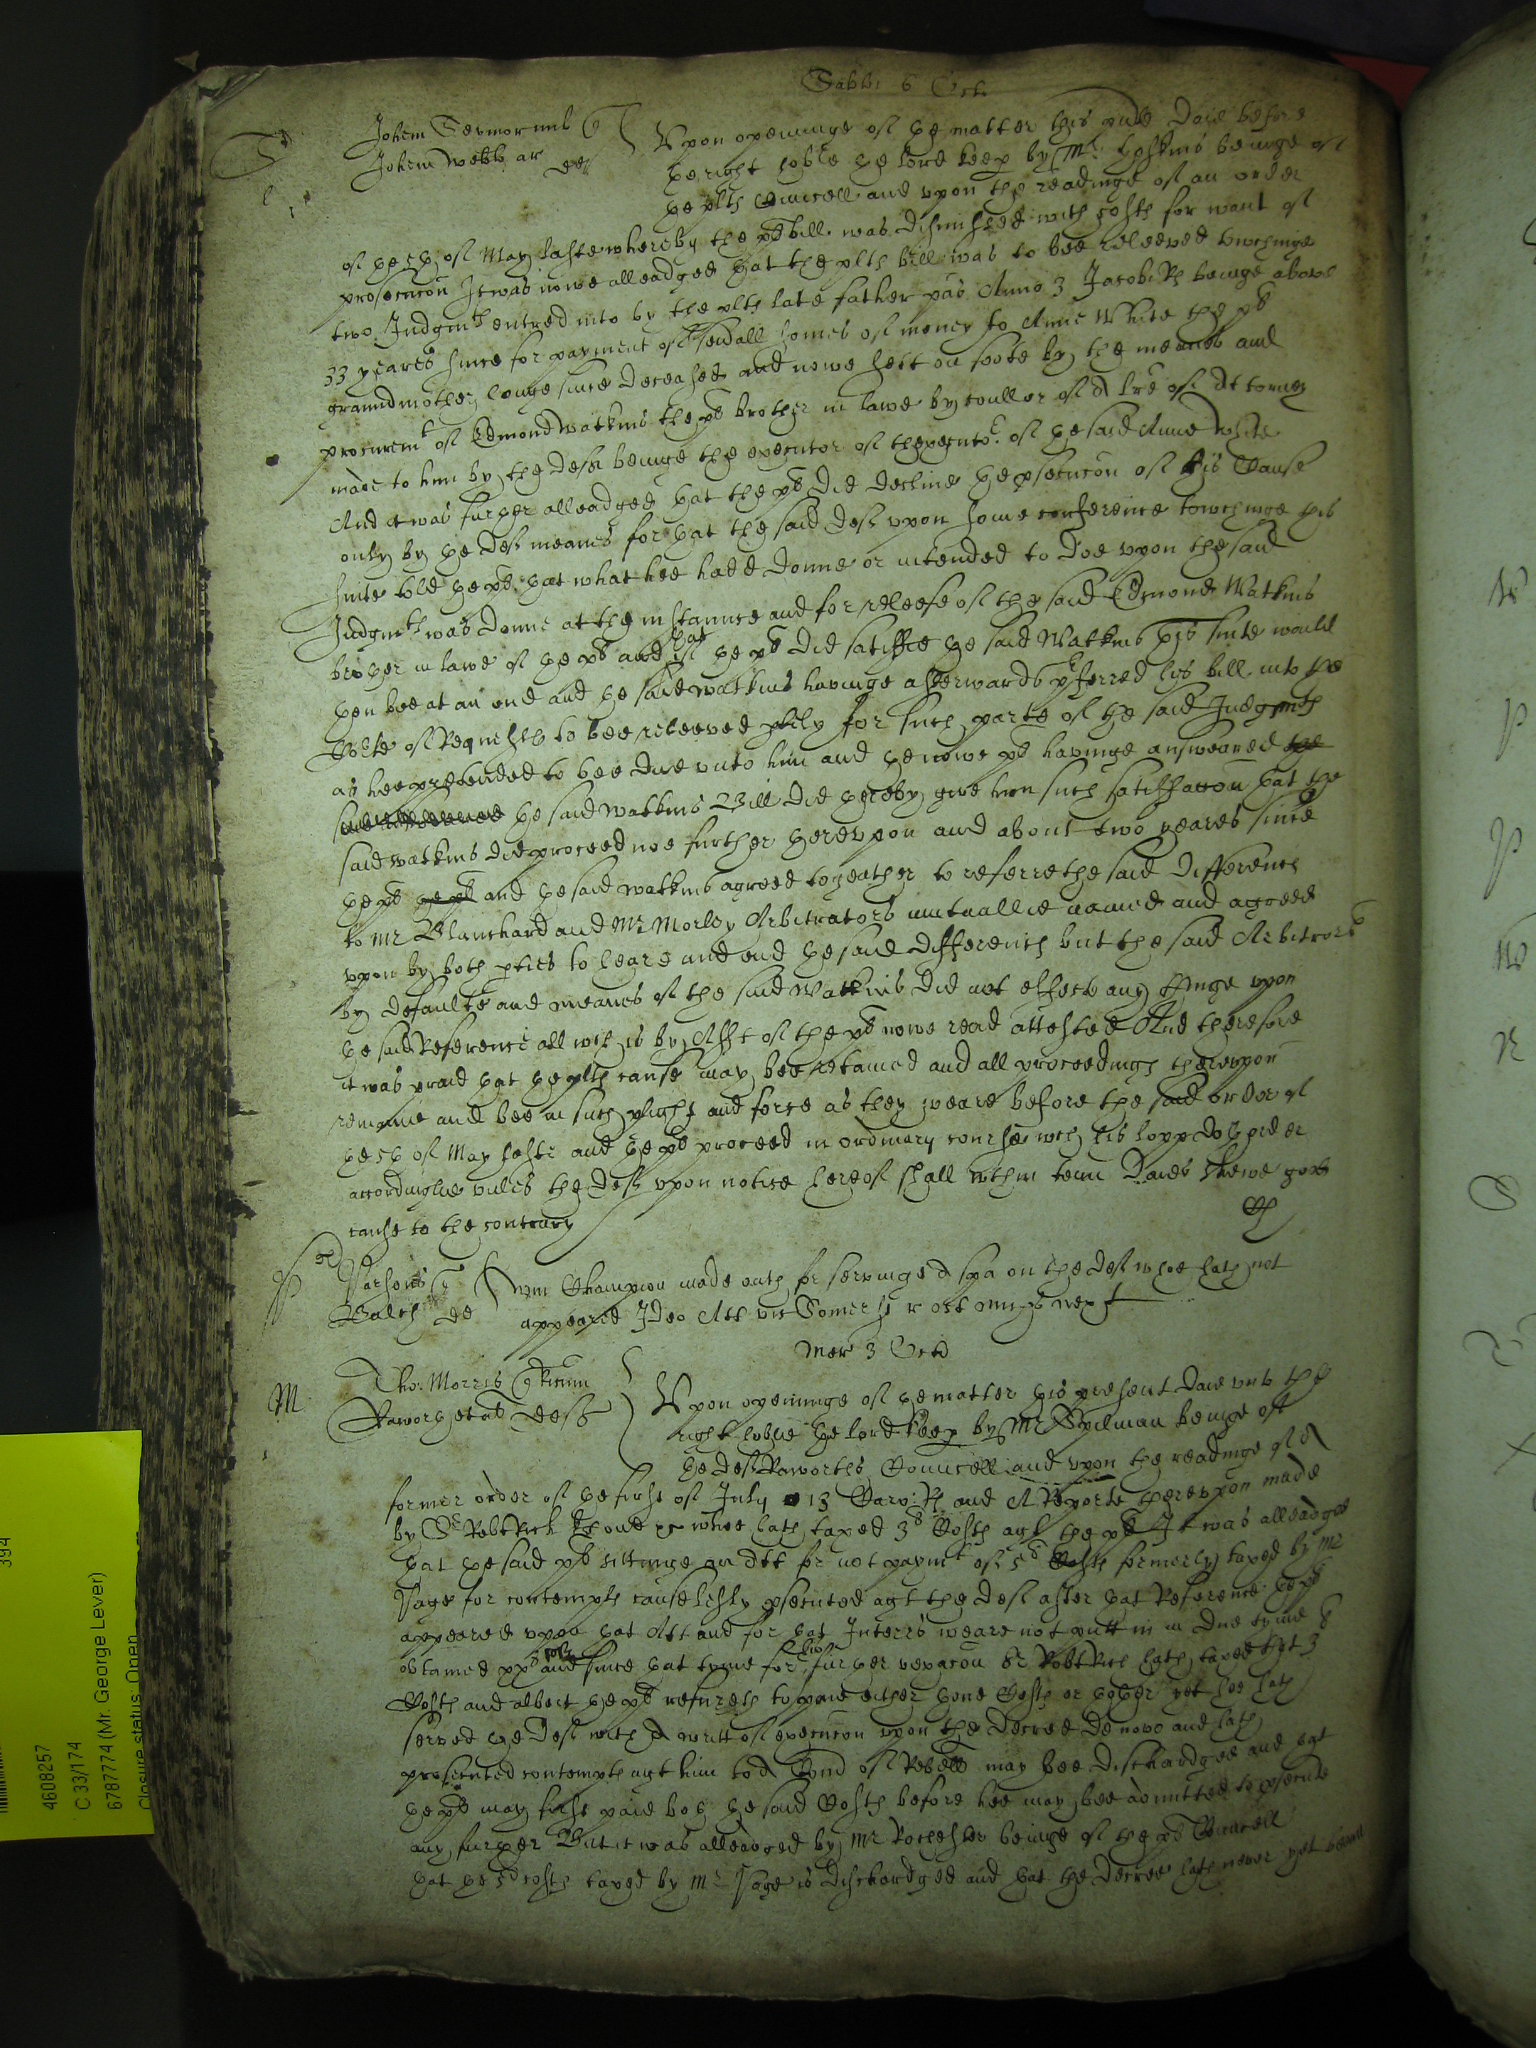 Sabbi 6 Octo
Johem Seymor mil q
Johem Webb ar def
Upon openinge of ye matter this pnte daie before
ye right hoble ye lord keep by Mr Hoskins beinge of
ye plts Councell and upon the readinge of an order
of ye of May laste whereby the pts bill was dismissed with costs for want of
prosecucon It was nowe alleadged yat the plts bill was to bee releeved touchinge
two Judgmts entred into by the plts late father pas Anno 3 Jacobi Rs beinge above
33 yeares since for payment of sevall somes of money to Anne White the pts
grandmother longe since deceased and nowe sett on foote by the meanes and
procuremt of Edmond Watkins the pts brother in lawe by coullor of A lre of Attorney
made to him by the deft beinge the executor of thexecutor of ye said Anne White
And it was further alleadged yat the pt did decline ye psecucon of this Cause
only by ye defts meanes for yat the said deft upon some conference towchinge this
suite told ye pt yat what hee hadd donne or intended to doe upon the said
Judgmts was donne at the instannce and for releefe of the said Edmond Watkins
brother in lawe of ye pt and yat if ye pt did satisfie ye said Watkins this suite would
then bee at an end and ye said Watkins havinge afterwards pferred his bill into the
Corte of Requests to bee releeved ptely for such parte of the said Judgmts
as hee pretended to bee due unto him and ye nowe pt havinge answeared the
ye said Watkins Bill did thereby give him such satisfaccon yat the
said Watkins did proceed noe further thereupon and about two yeares since
ye pt ye pt and ye said Watkins agreed togeather to referre the said differences
to Mr Blanchard and Mr Morley Arbitrators mutuallie named and agreed
upon by both pties to heare and end ye said differences but the said Arbitrators
by defaulte and meanes of the said Watkins did not effecte any thinge upon
ye said Reference all wch is by Afft of the pt nowe read attested And therefore
it was praid yat ye plts cause may bee retained and all proceedings thereupon
remaine and bee in such plight and force as they weare before the said order of
ye of May laste and ye pt proceed in ordinary course wch his lopp doth order
accordinglie unles the deft upon notice hereof shall wthin tenn daies shewe good
cause to the contrary
Parsons q
Balch de
Wm Champion made oath for servinge A spa on the deft whoe hath not
appeared Ideo Att vic Somersett
Mer 3 Octo
Tho: Morris q
Raworth def
Upon openinge of ye matter this present daie unto the
right hoble the lord keep by Mr Spilman beinge of
ye deft Raworths Councell and upon the readinge of A
former order of ye first of July 13 Caro: Rs and A Reporte thereupon made
by Sr Robt Rich Kt one whoe hath taxed 3 Costs agt the pt It was alleadged
yat ye said pt sittinge an Att for not paymt of 5 Costs formerly taxed by Mr
Page for contempts causelesly psecuted agt the deft after yat Reference ye pt
appeared upon yat Att and for yat Interrs weare not putt in in due tyme
obtained and since yat tyme for further vexacon Sr Robt Rich hath taxed that 3
Costs and albeit ye pt refuseth to paie either thone Costs or thother yet hee hath
served ye deft with A writt of execucon upon the decree de novo and hath
prosecuted contempts agt him to A Comd of Rebell may bee dischardged and yat
ye pt may first paie both ye said Costs before hee may bee admitted to psecute
any further But it was alleadged by Mr Rochester beinge of the pts Councell
yat ye costs taxed by Mr Page is dischardged and yat the decree hath never yet beene
4608257
C 33/174
6787774 (Mr. George Lever)
Closure status: Open